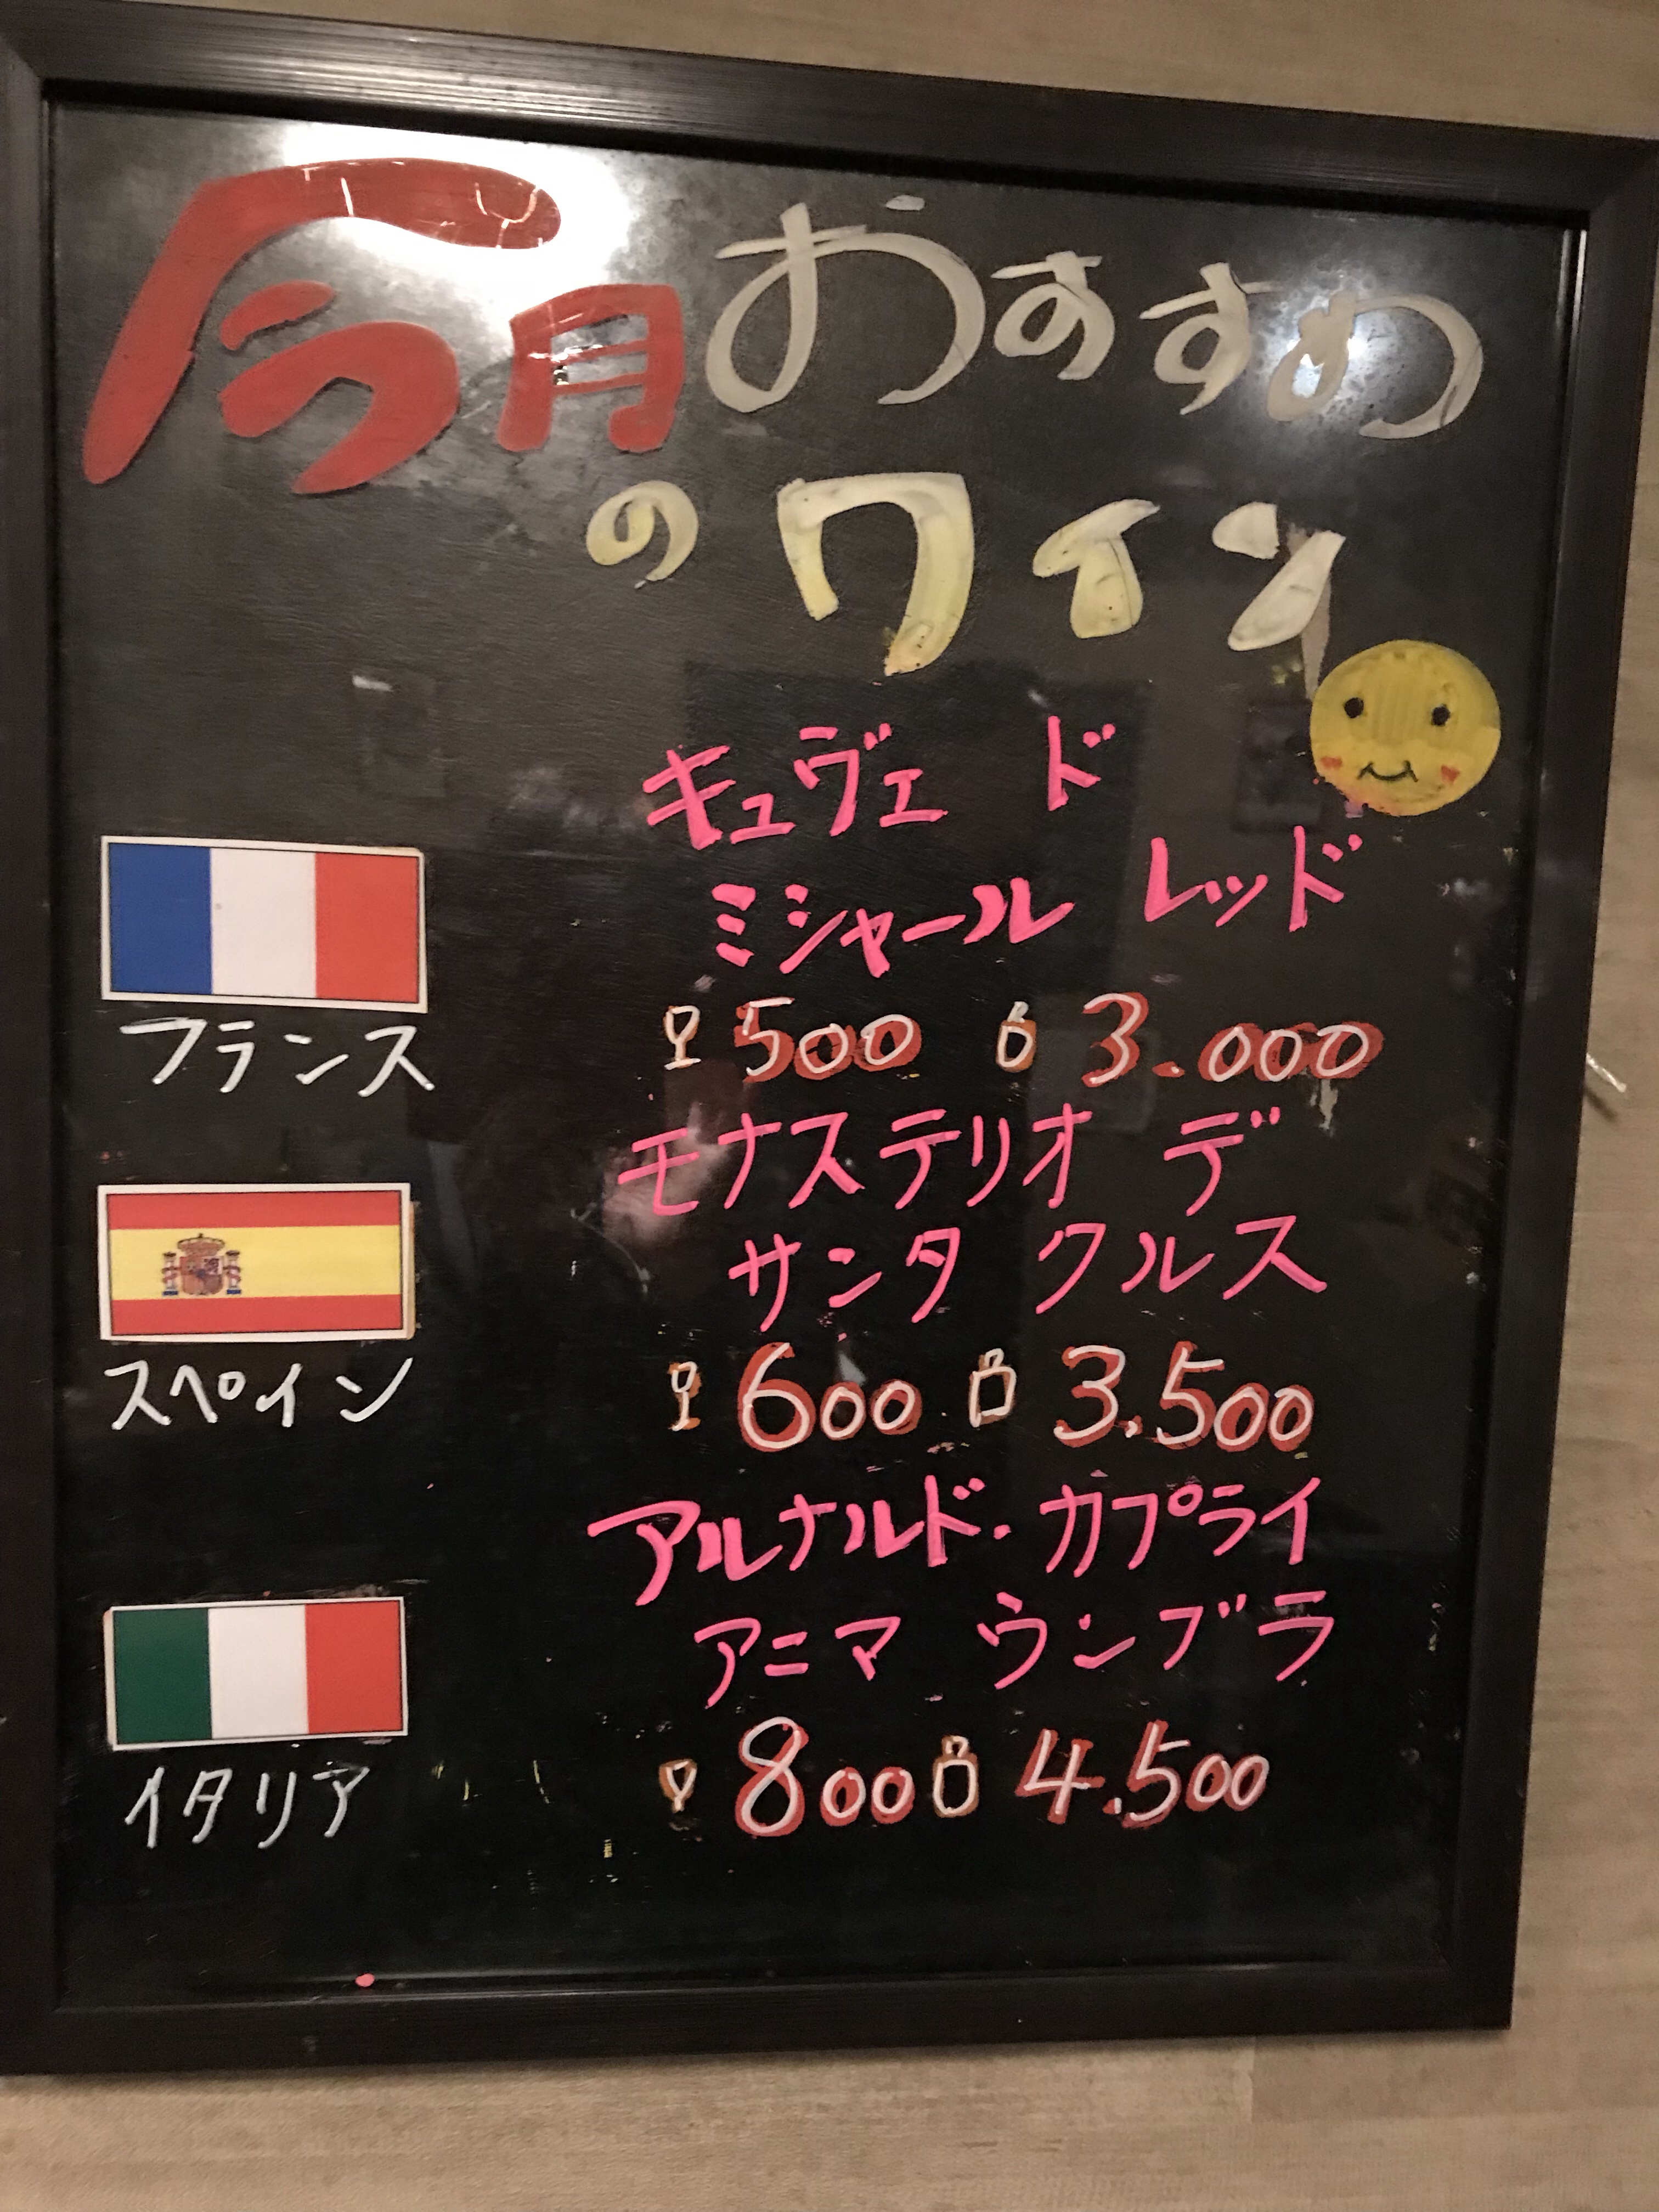 今月おすすめ
のワイン
キュヴェ ド
ミシャール レッド
フランス
500 3.000
モナステリオ デ
サンタ クルス
スペイン
600 3.500
アルナルド・カプライ
アニマ ウンブラ
イタリア
800 4.500